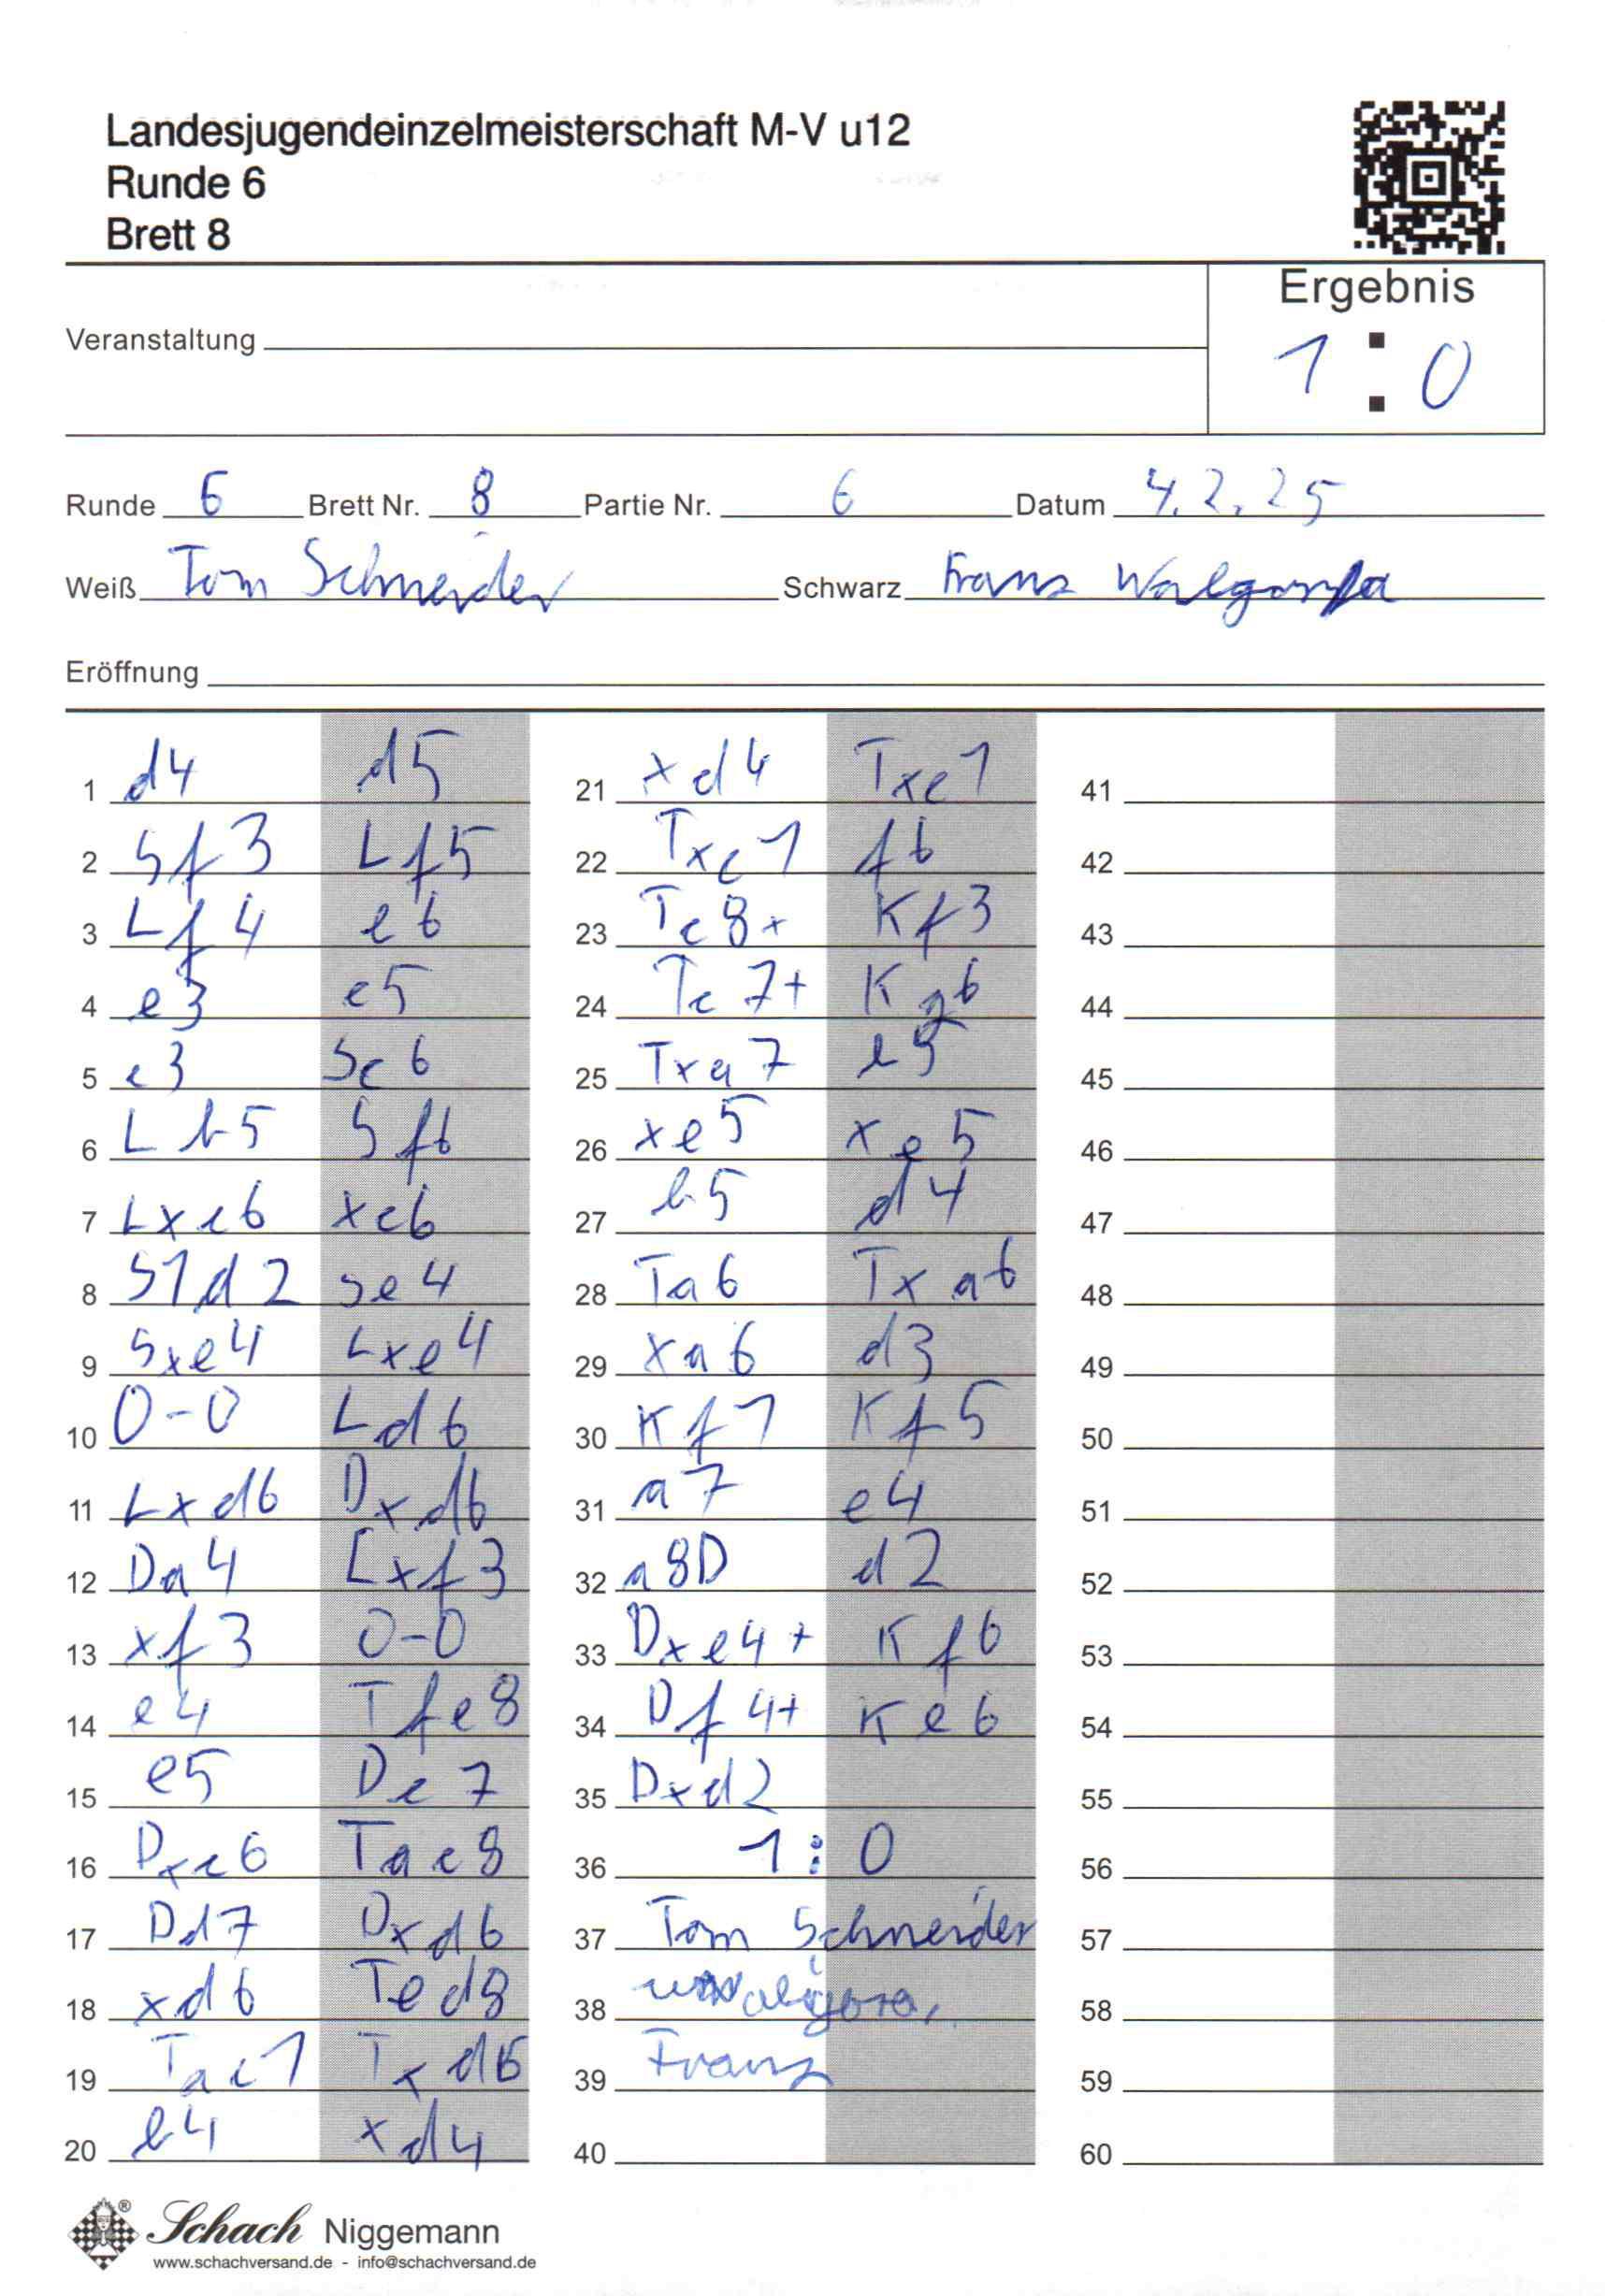 Landesjugendeinzelmeisterschaft M-V u12
Runde 6
Brett 8
Ergebnis
1 : 0
Veranstaltung
Runde 6 Brett Nr. 8 Partie Nr. 6 Datum 4.2.25
Weiß Tom Schneider Schwarz Franz
Eröffnung
1 d4 d5
2 Sf3 Lf5
3 Lf4 e6
4 e3 c5
5 c3 Sc6
6 Lb5 Sf6
7 Lxc6 xc6
8 S1d2 Se4
9 Sxe4 Lxe4
10 0-0 Ld6
11 Lxd6 Dxd6
12 Da4 Lxf3
13 xf3 0-0
14 e4 Tfe8
15 e5 De7
16 Dxc6 Tac8
17 Dd7 Dxd6
18 xd6 Ted8
19 Tac1 Txd6
20 b4 xd4
21 xd4 Txc1
22 Txc1 f6
23 Tc8+ Kf3
24 Tc7+ Kg6
25 Txa7 e5
26 xe5 xe5
27 b5 d4
28 Ta6 Txa6
29 xa6 d3
30 Kf1 Kf5
31 a7 e4
32 a8D d2
33 Dxe4+ Kf6
34 Df4+ Ke6
35 Dxd2
36 1:0
37 Tom Schneider
38
39 Franz
40
41
42
43
44
45
46
47
48
49
50
51
52
53
54
55
56
57
58
59
60
Schach Niggemann
www.schachversand.de - info@schachversand.de